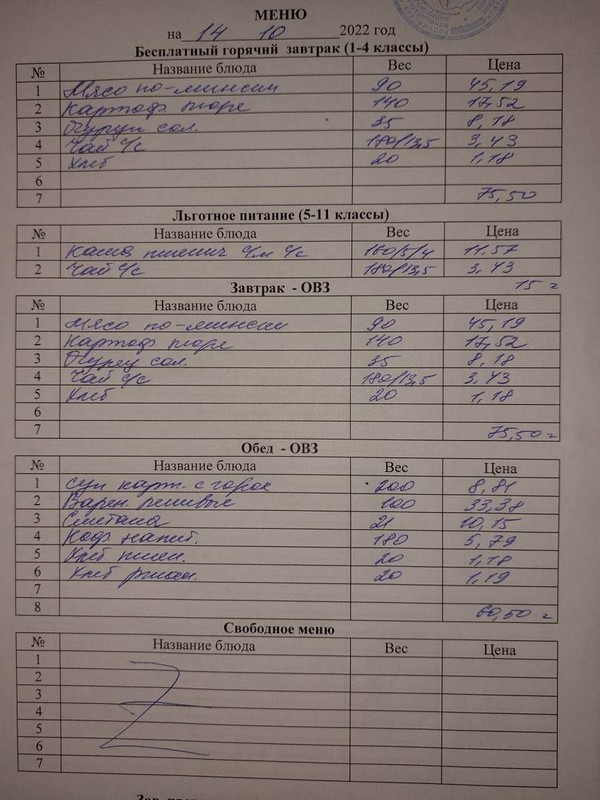 МЕНЮ
на 14 10 2022 год
Бесплатный горячий завтрак (1-4 классы)
№ Название блюда Вес Цена
1 Мясо по-мински 90 45,19
2 Картоф. пюре 140 17,52
3 Огурцы сол. 35 8,18
4 Чай с/с 180/13,5 3,43
5 Хлеб 20 1,18
6
7 75,50
Льготное питание (5-11 классы)
№ Название блюда Вес Цена
1 Каша пшенич с/м с/с 180/5/4 11.57
2 Чай с/с 180/13,5 3,43
15 =
Завтрак - ОВЗ
№ Название блюда Вес Цена
1 Мясо по-мински 90 45,19
2 Картоф. пюре 140 17,52
3 Огурец сол. 35 8,18
4 Чай с/с 180/13,5 3,43
5 Хлеб 20 1,18
6
7 75,50 =
Обед - ОВЗ
№ Название блюда Вес Цена
1 Суп карт. с горох 200 8,81
2 Варен. ленивые 100 33,38
3 Сметана 21 10,15
4 Коф. напит. 180 5,79
5 Хлеб пшен. 20 1,18
6 Хлеб ржан. 20 1,19
7
8 60,50 =
Свободное меню
№ Название блюда Вес Цена
1
2
3
4
5
6
7